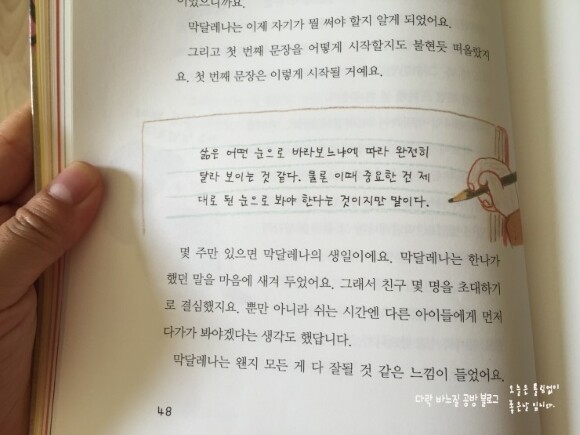 있으니까요.
막달레나는 이제 자기가 뭘 써야 할지 알게 되었어요.
그리고 첫 번째 문장을 어떻게 시작할지도 불현듯 떠올랐지
요. 첫 번째 문장은 이렇게 시작될 거예요.
삶은 어떤 눈으로 바라보느냐에 따라 완전히
달라 보이는 것 같다. 물론 이때 중요한 건 제
대로 된 눈으로 봐야 한다는 것이지만 말이다.
몇 주만 있으면 막달레나의 생일이에요. 막달레나는 한나가
했던 말을 마음에 새겨 두었어요. 그래서 친구 몇 명을 초대하기
로 결심했지요. 뿐만 아니라 쉬는 시간엔 다른 아이들에게 먼저
다가가 봐야겠다는 생각도 했답니다.
막달레나는 왠지 모든 게 다 잘될 것 같은 느낌이 들었어요.
48
다락 바느질 공방 블로그
오늘은 틀림없이
좋은날 입니다.